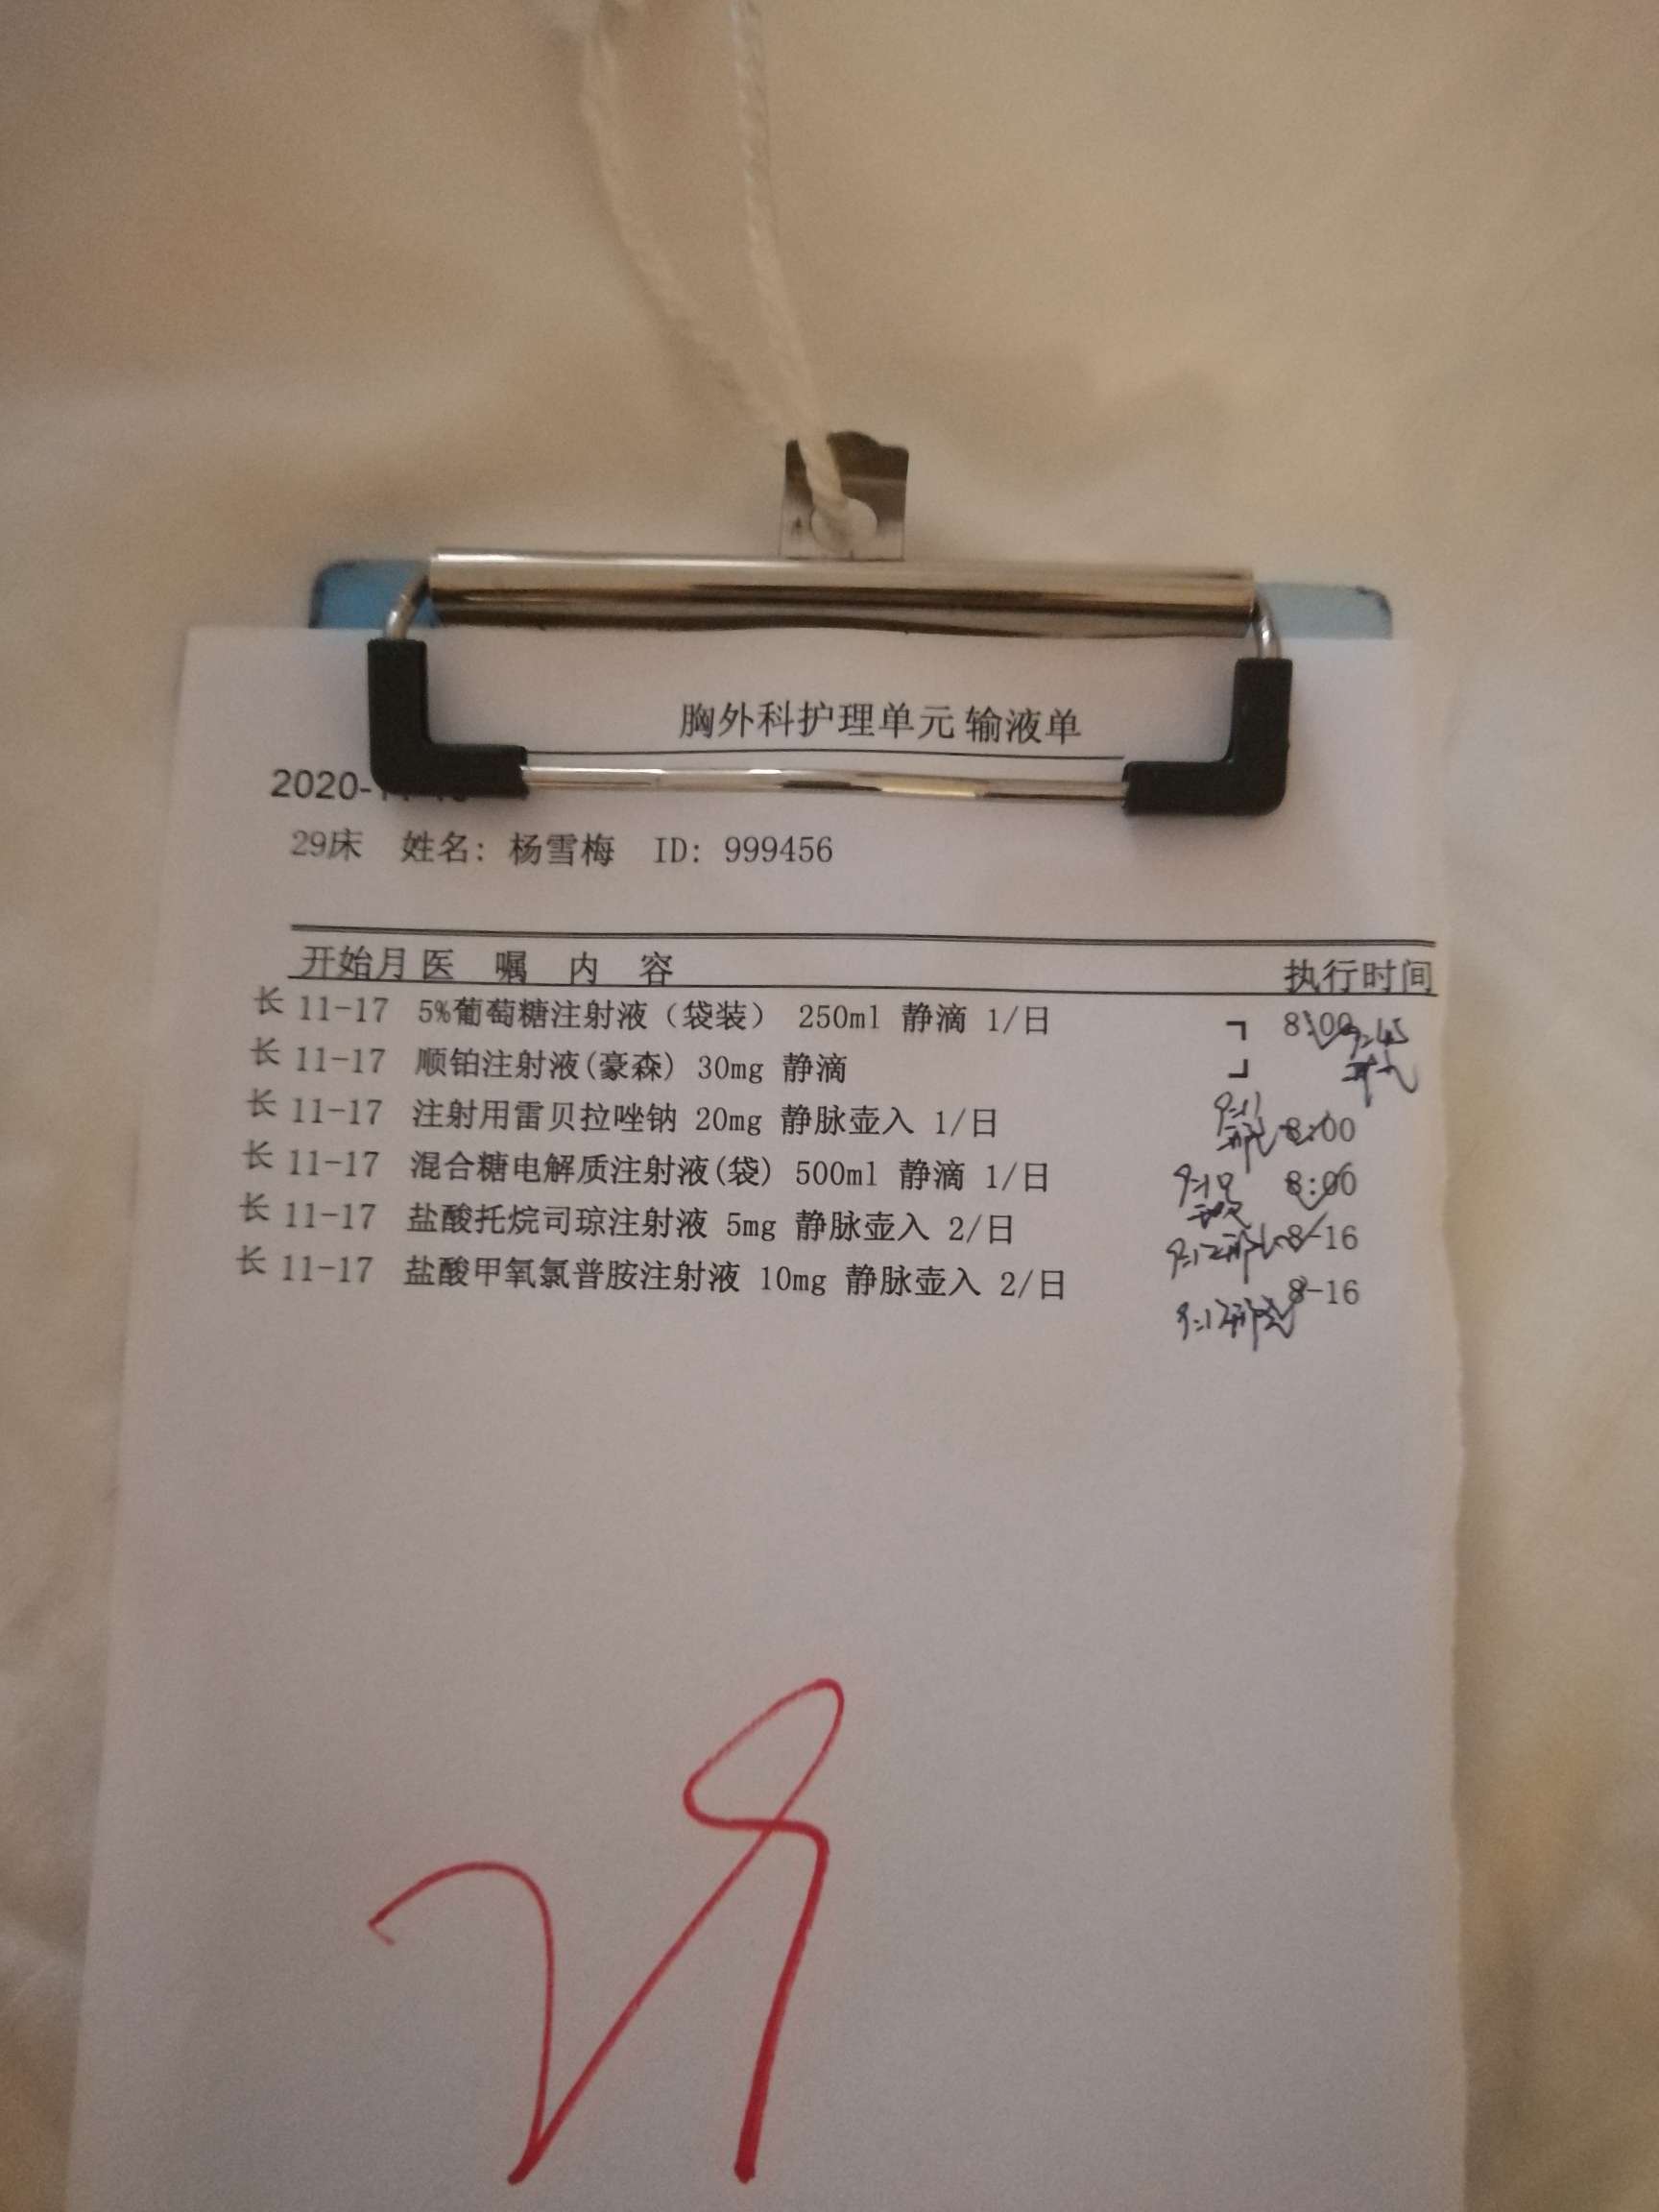 胸外科护理单元 输液单
2020-
29床 姓名: 杨雪梅 ID: 999456
开始月 医 嘱 内 容 执行时间
长 11-17 5%葡萄糖注射液（袋装） 250ml 静滴 1/日 ┐ 8:00 9:45
长 11-17 顺铂注射液(豪森) 30mg 静滴 ┘
长 11-17 注射用雷贝拉唑钠 20mg 静脉壶入 1/日 9:11 8:00
长 11-17 混合糖电解质注射液(袋) 500ml 静滴 1/日 8:00
长 11-17 盐酸托烷司琼注射液 5mg 静脉壶入 2/日 9:12 8-16
长 11-17 盐酸甲氧氯普胺注射液 10mg 静脉壶入 2/日 8-16
9:12
29